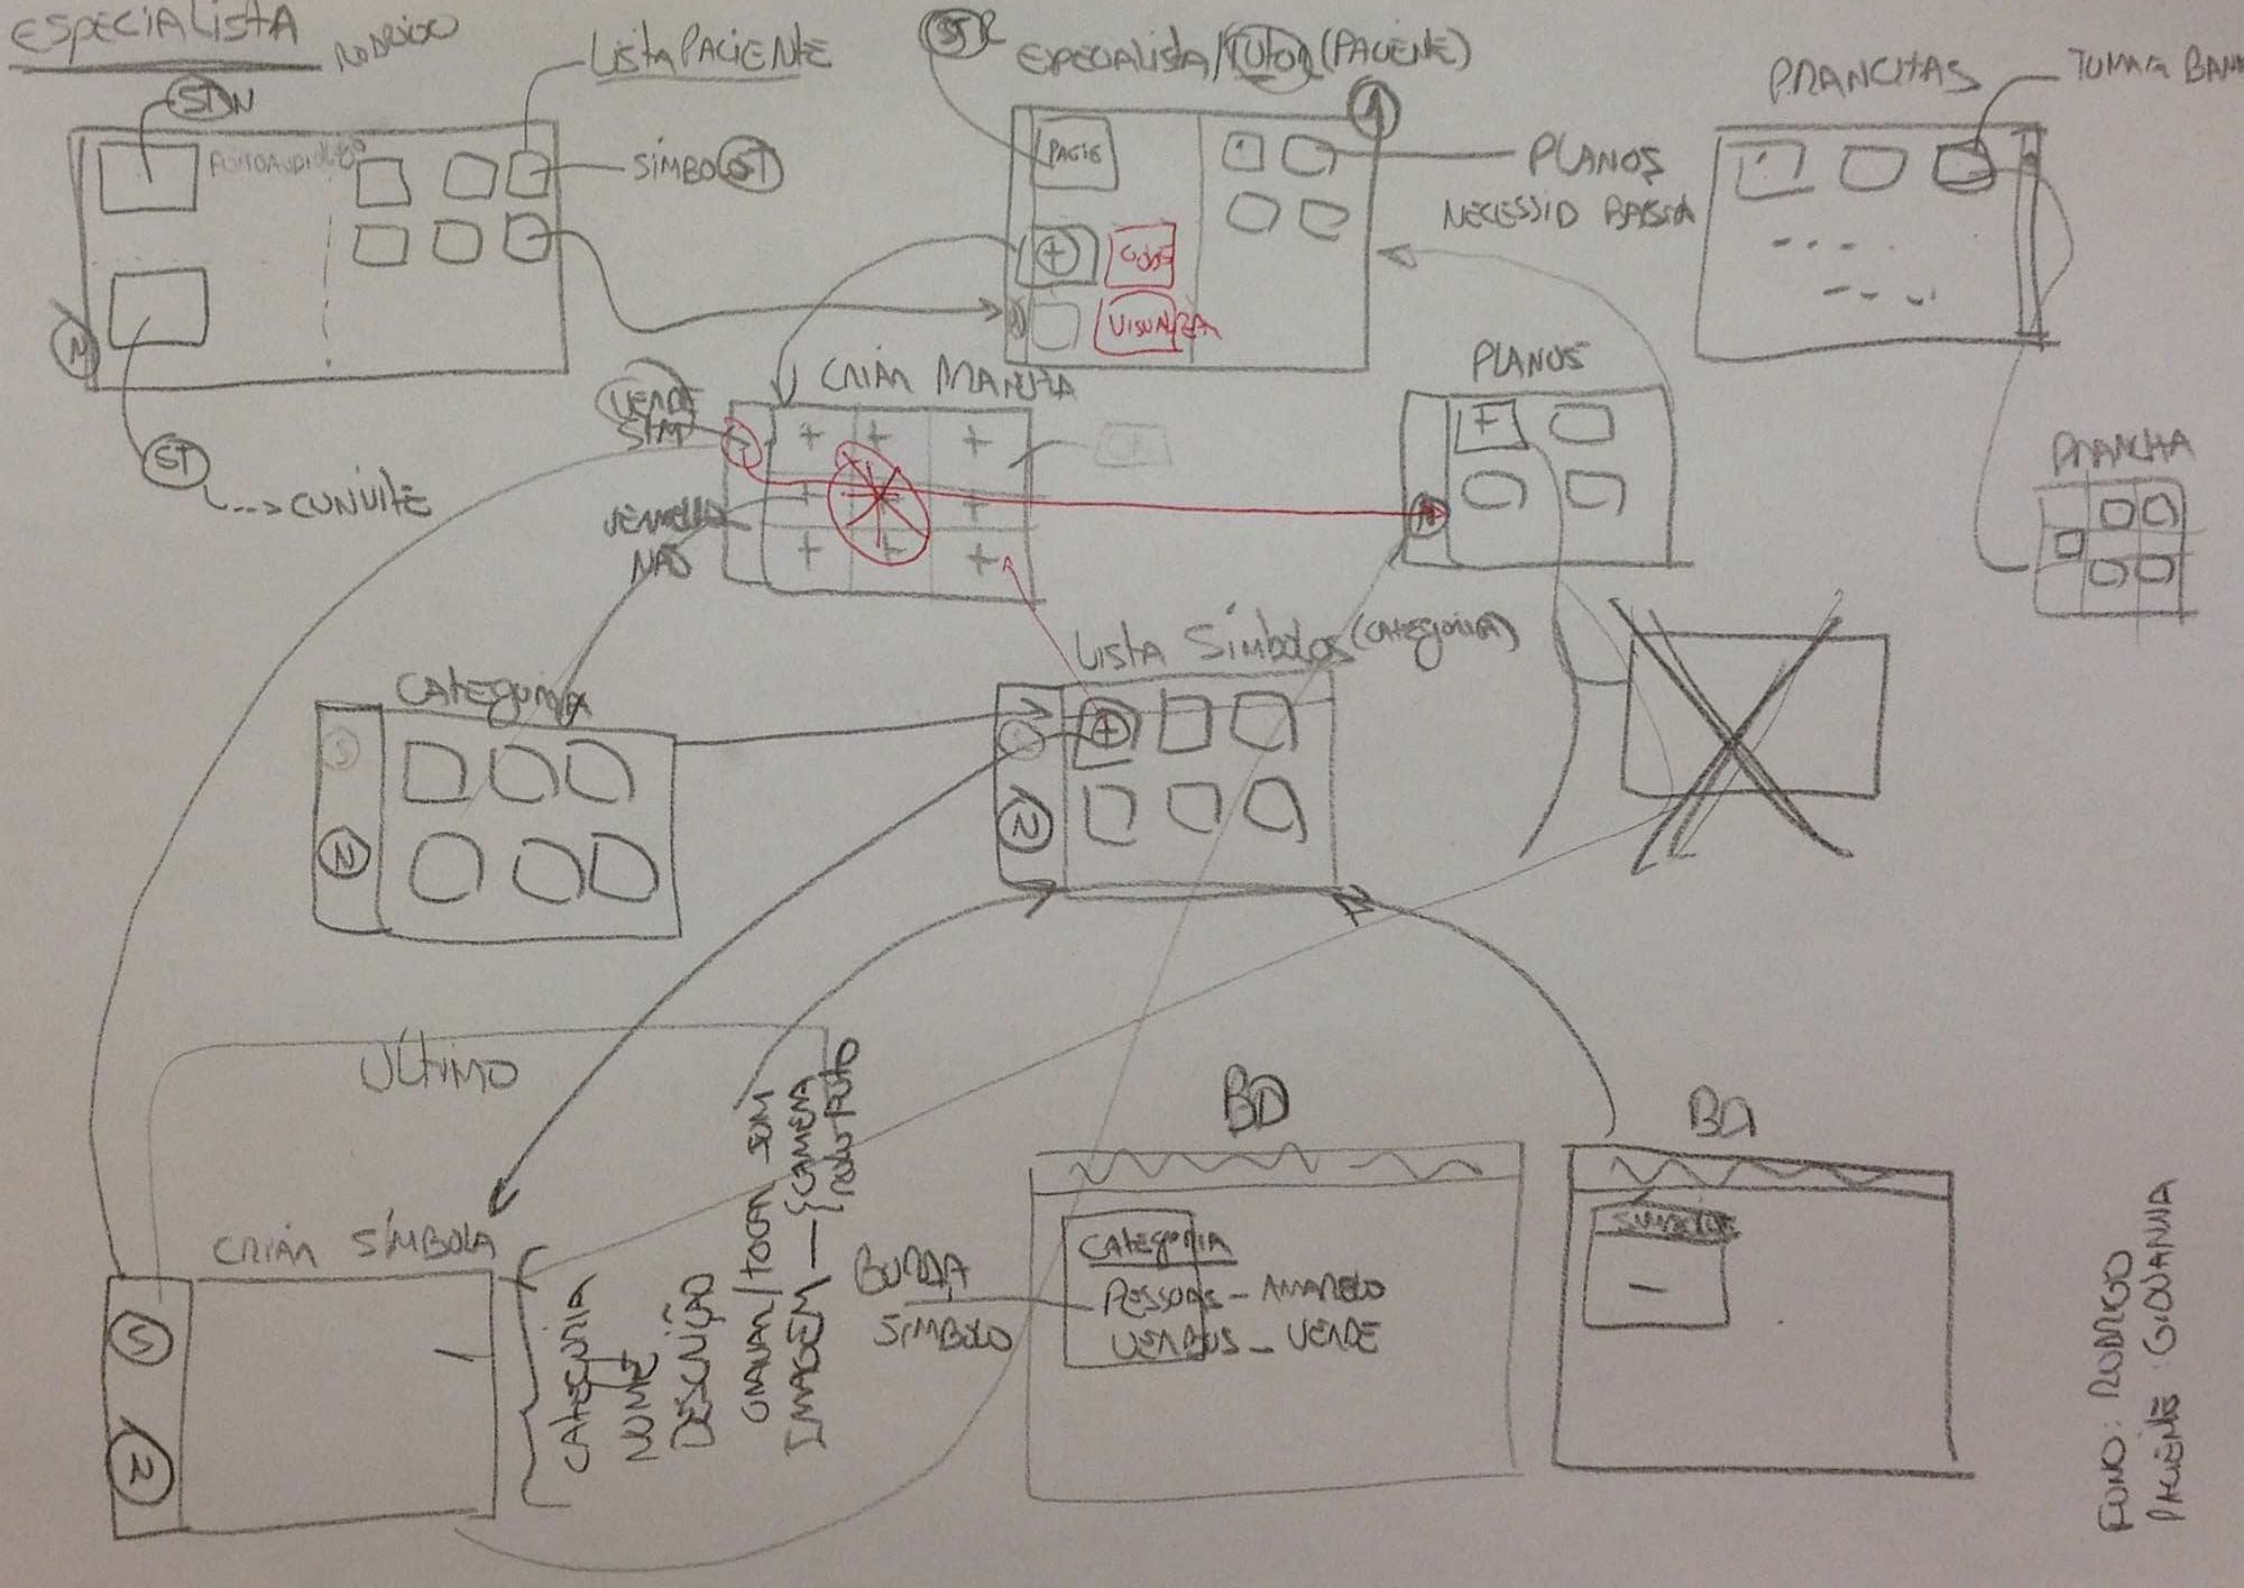 ESPECIALISTA
RODRIGO
LISTA PACIENTE
ESPECIALISTA/TUTOR (PACIENTE)
PRANCHAS
TOMAR BAN
SÍMBOLO
PLANOS
NECESSID BÁSICA
CONVITE
CRIAR PRANCHA
VERDE
SIM
VERMELHO
NÃO
PLANOS
PRANCHA
CATEGORIA
LISTA SÍMBOLOS (CATEGORIA)
ÚLTIMO
CRIAR SÍMBOLO
CATEGORIA
NOME
DESCRIÇÃO
GRAVAR/TOCAR SOM
IMAGEM — { CAMERA
ROLO FOTO
BORDA
SÍMBOLO
BD
CATEGORIA
PESSOAS - AMARELO
VERBOS - VERDE
BD
FONO: RODRIGO
PACIENTE: GIOVANNA